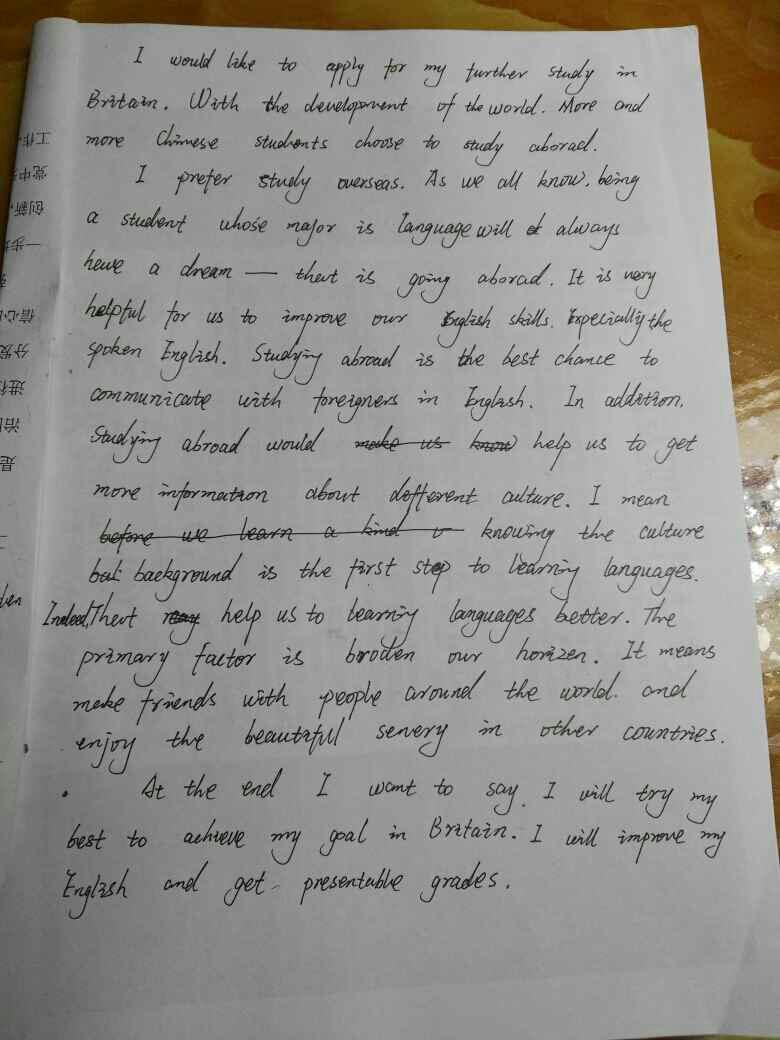 I would like to apply for my further study in
Britain. With the development of the world. More and
more Chinese students choose to study aborad.
I prefer study overseas. As we all know, being
a student whose major is language will always
have a dream — that is going aborad. It is very
helpful for us to improve our English skills. Especially the
spoken English. Studying abroad is the best chance to
communicate with foreigners in English. In addition,
Studying abroad would make us know help us to get
more information about defferent culture. I mean
before we learn a kind knowing the culture
but background is the first step to learning languages.
Indeed, That may help us to learning languages better. The
primary factor is broden our horizen. It means
make friends with people around the world. and
enjoy the beautiful senery in other countries.
At the end I want to say, I will try my
best to achieve my goal in Britain. I will improve my
English and get presentable grades.
工作
党中
创新,
一步
信心
分发
进行
治
是